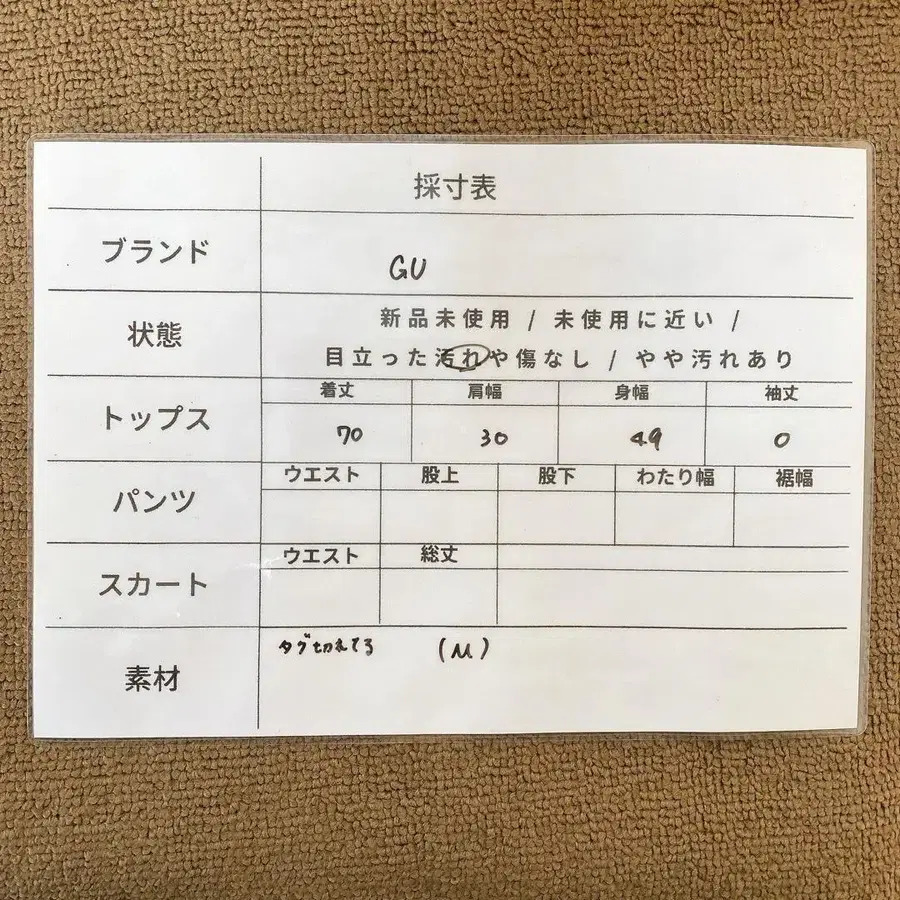 採寸表
ブランド
GU
状態
新品未使用 / 未使用に近い /
目立った汚れや傷なし / やや汚れあり
トップス
着丈 肩幅 身幅 袖丈
70 30 49 0
パンツ
ウエスト 股上 股下 わたり幅 裾幅
スカート
ウエスト 総丈
素材
タグ切れてる (M)